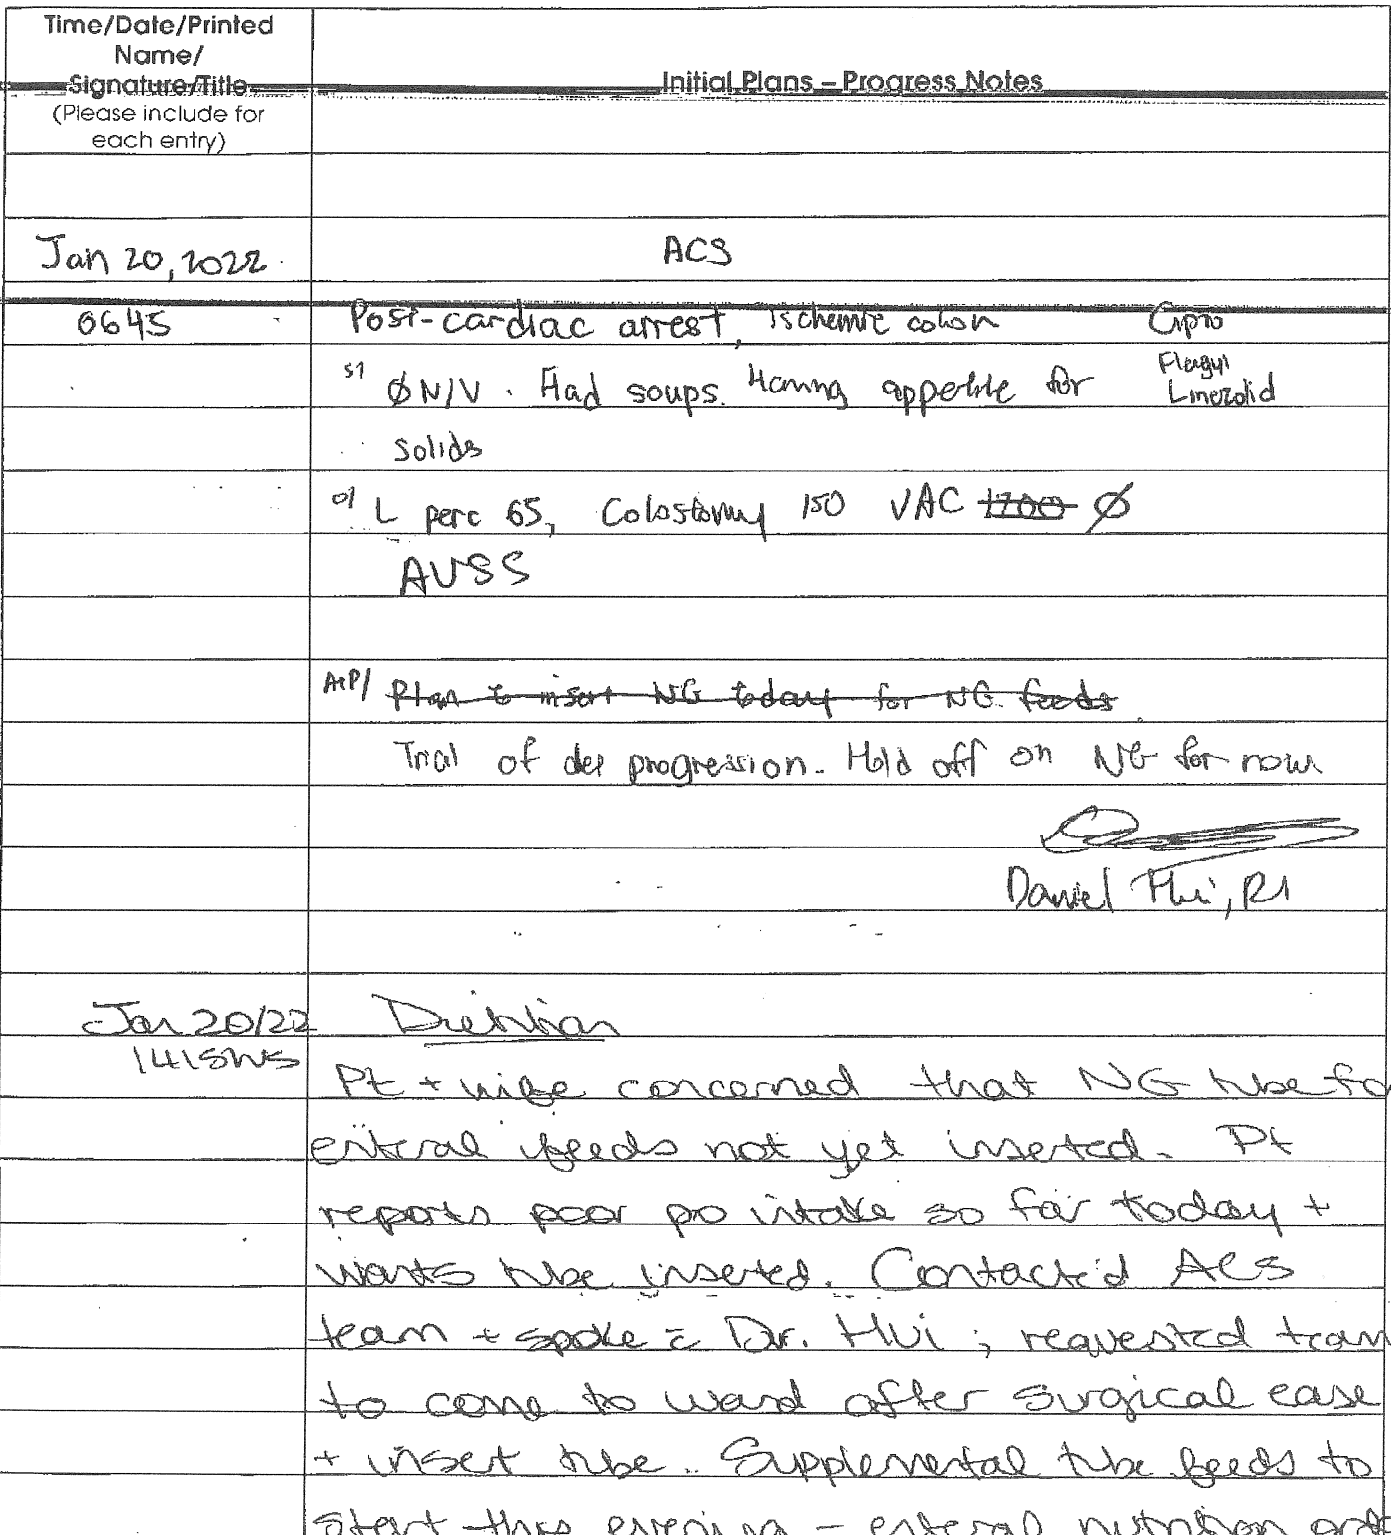 Time/Date/Printed
Name/
Signature/Title
(Please include for
each entry)
Initial Plans – Progress Notes
Jan 20, 2022
ACS
0645
Post-cardiac arrest, Ischemic colon
Cipro
S/ Ø N/V. Had soups. Having appetite for
Flagyl
Linezolid
solids
O/ L perc 65, Colostomy 150 VAC 1200 Ø
AVSS
A+P/ Plan to insert NG today for NG feeds
Trial of diet progression. Hold off on NG for now
Daniel Hui, R1
Jan 20/22
Dietitian
1415hrs
Pt + wife concerned that NG tube fo
enteral feeds not yet inserted. Pt
reports poor po intake so far today +
wants tube inserted. Contacted ACS
team + spoke c̄ Dr. Hui ; requested team
to come to ward after surgical case
+ insert tube. Supplemental tube feeds to
start this evening – enteral nutrition